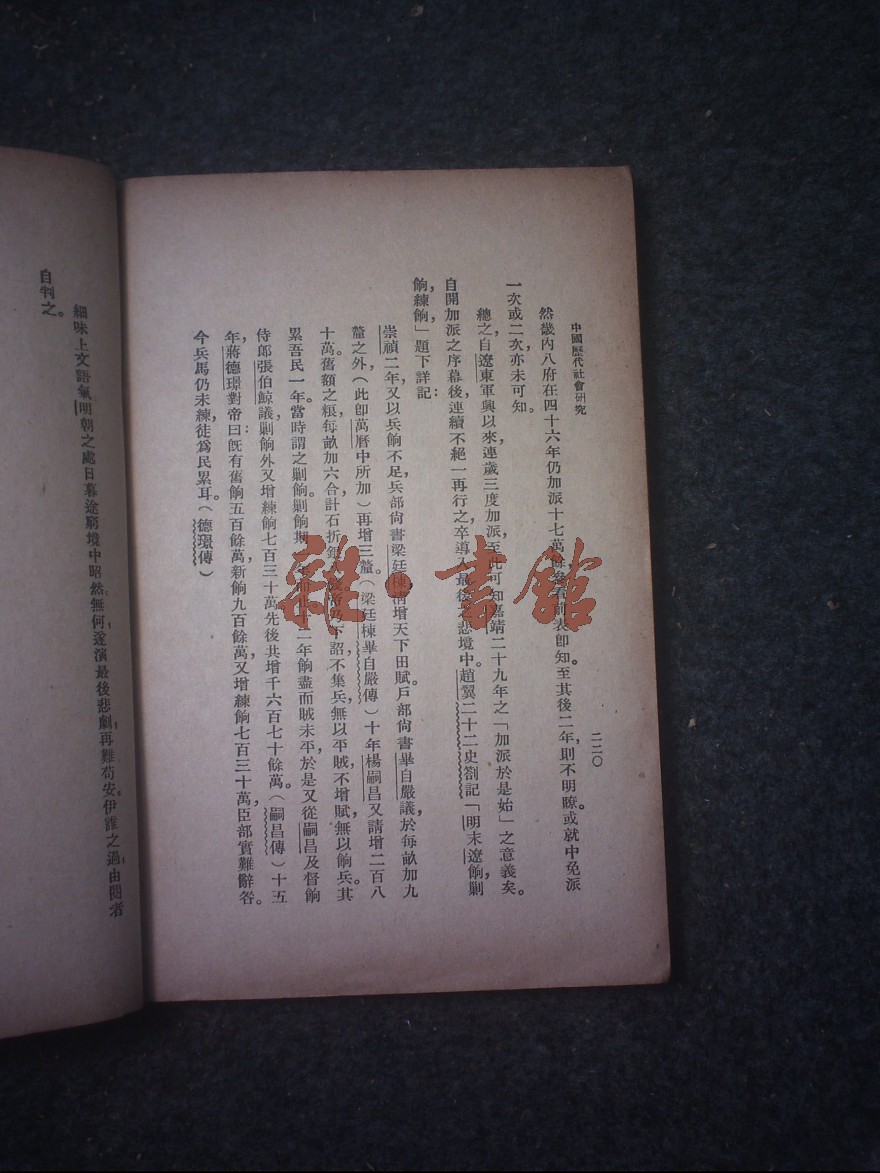 中國歷代社會研究
二二〇
然畿內八府在四十六年仍加派十七萬餘 看前表卽知至其後二年，則不明瞭。或就中免派
一次或二次亦未可知。
總之自遼東軍興以來連歲三度加派，至此可知嘉靖二十九年之「加派於是始」之意義矣。
自開加派之序幕後連續不絕一再行之卒導入最後 悲境中。趙翼二十二史劄記「明末遼餉，剿
餉，練餉」題下詳記：
崇禎二年，又以兵餉不足，兵部尙書梁廷棟請增天下田賦，戶部尙書畢自嚴議於每畝加九
釐之外（此卽萬曆中所加）再增三釐。（梁廷棟畢自嚴傳）十年楊嗣昌又請增二百八
十萬。舊額之糧，每畝加六合，計石折銀 帝乃下詔不集兵無以平賊，不增賦，無以餉兵。其
累吾民一年。當時謂之剿餉。剿餉期 年而止十二年餉盡而賊未平，於是又從嗣昌及督餉
侍郎張伯鯨議剿餉外又增練餉七百三十萬先後共增千六百七十餘萬。（嗣昌傳）十五
年，蔣德璟對帝曰：旣有舊餉五百餘萬，新餉九百餘萬，又增練餉七百三十萬，臣部實難辭咎。
今兵馬仍未練徒爲民累耳。（德璟傳）
細味上文語氣，明朝之處日暮途窮境中昭然。無何，遂演最後悲劇，再難苟安。伊誰之過，由閱者
自判之。
雜·書館